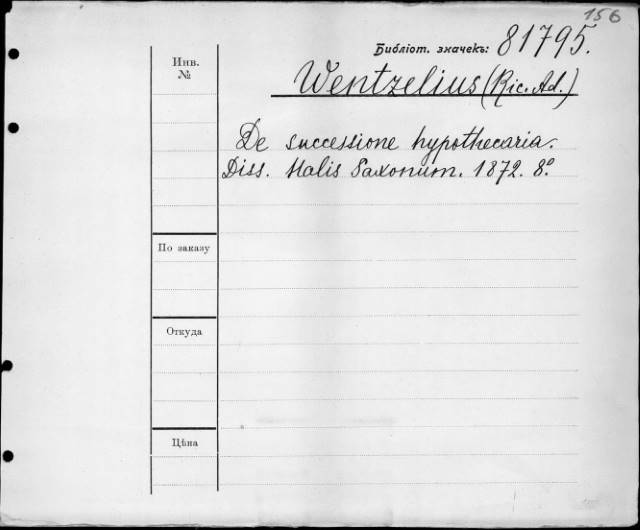 156
Библіот. значекъ: 81795.
Инв.
№
Wentzelius (Ric. Ad.)
De successione hypothecaria.
Diss. Halis Saxonum. 1872. 8°.
По заказу
Откуда
Цѣна